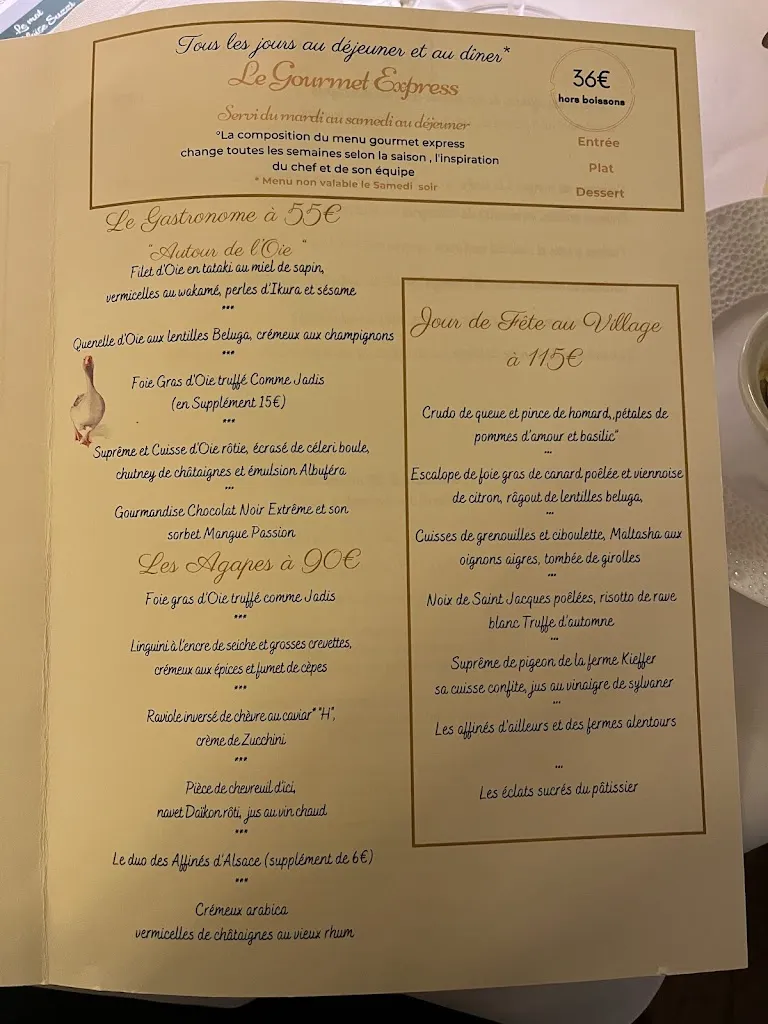 Tous les jours au déjeuner et au dîner*
Le Gourmet Express
36€
hors boissons
Servi du mardi au samedi au déjeuner
°La composition du menu gourmet express
change toutes les semaines selon la saison , l'inspiration
du chef et de son équipe
* Menu non valable le Samedi soir
Entrée
Plat
Dessert
Le Gastronome à 55€
"Autour de l'Oie "
Filet d'Oie en tataki au miel de sapin,
vermicelles au wakamé, perles d'Ikura et sésame
***
Quenelle d'Oie aux lentilles Beluga, crémeux aux champignons
***
Foie Gras d'Oie truffé Comme Jadis
(en Supplément 15€)
***
Suprême et Cuisse d'Oie rôtie, écrasé de céleri boule,
chutney de châtaignes et émulsion Albuféra
***
Gourmandise Chocolat Noir Extrême et son
sorbet Mangue Passion
Les Agapes à 90€
Foie gras d'Oie truffé comme Jadis
***
Linguini à l'encre de seiche et grosses crevettes,
crémeux aux épices et fumet de cèpes
***
Raviole inversé de chèvre au caviar* "H",
crème de Zucchini
***
Pièce de chevreuil d'ici,
navet Daïkon rôti, jus au vin chaud
***
Le duo des Affinés d'Alsace (supplément de 6€)
***
Crémeux arabica
vermicelles de châtaignes au vieux rhum
Jour de Fête au Village
à 115€
Crudo de queue et pince de homard,,pétales de
pommes d'amour et basilic"
...
Escalope de foie gras de canard poêlée et viennoise
de citron, râgout de lentilles beluga,
...
Cuisses de grenouilles et ciboulette, Maltasha aux
oignons aigres, tombée de girolles
...
Noix de Saint Jacques poêlées, risotto de rave
blanc Truffe d'automne
...
Suprême de pigeon de la ferme Kieffer
sa cuisse confite, jus au vinaigre de sylvaner
...
Les affinés d'ailleurs et des fermes alentours
...
Les éclats sucrés du pâtissier